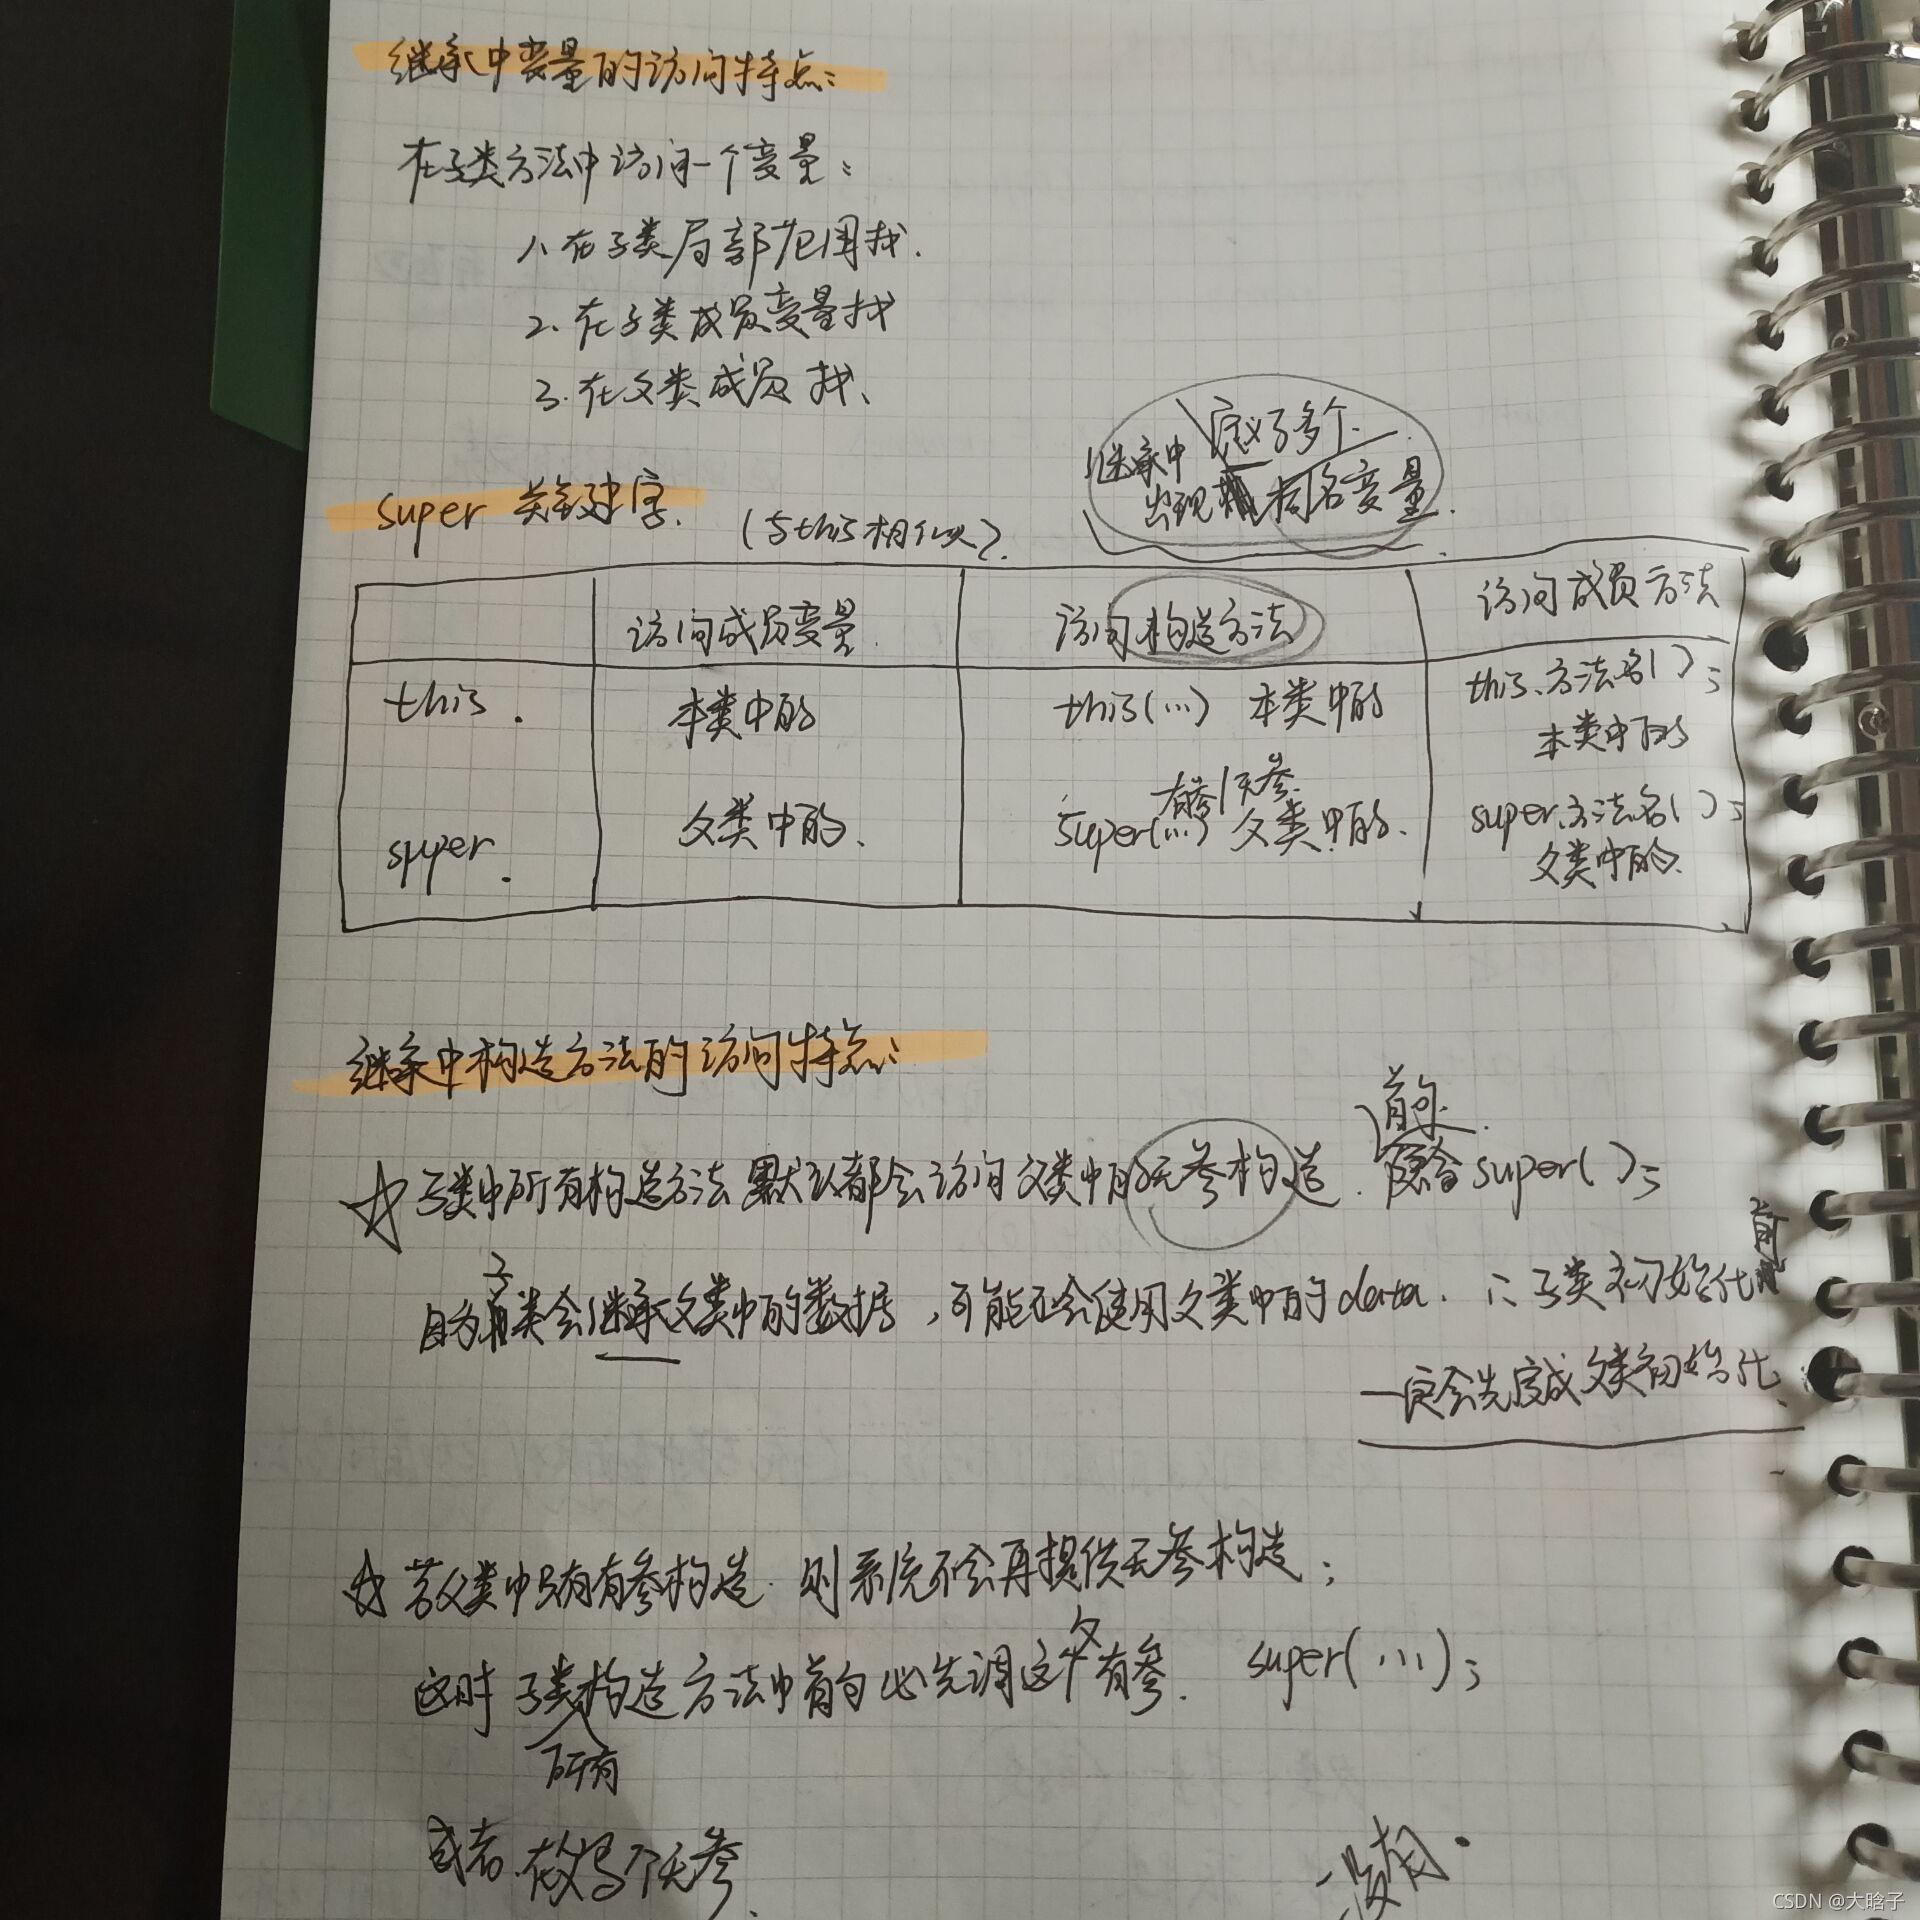 继承中变量的访问特点:
在子类方法中访问一个变量:
1、在子类局部范围找.
2. 在子类成员变量找
3. 在父类成员找、
定义了多个
继承中
出现 同名变量.
super 关键字. (与this相似).
访问成员变量 访问构造方法 访问成员方法
this. 本类中的 this(...) 本类中的 this、方法名( );
本类中的
有参/无参
super. 父类中的、 super(...) 父类中的、 super、方法名( );
父类中的
继承中构造方法的访问特点:
首句.
☆ 子类中所有构造方法默认都会访问父类中的无参构造. 隐含super( );
子 前
因为 类会继承父类中的数据,可能还会使用父类中的data. ∴子类初始化
一定会先完成父类初始化
☆ 若父类中只有有参构造. 则系统不会再提供无参构造;
父
这时 子类构造方法中首句必先调这个有参. super(...);
所有
或者. 写个无参.
没有.
CSDN @大晗子